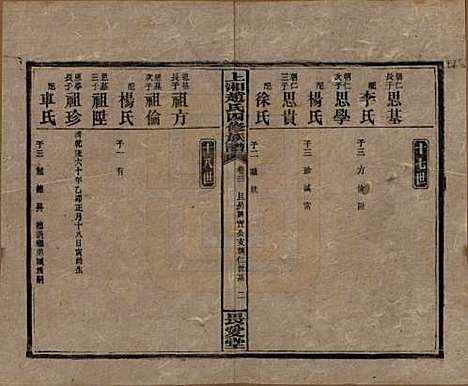 十七世
朝仁長子 思基
配 李氏
子三 方 倫 陞
朝仁次子 思學
配 楊氏
子三 珍
朝仁三子 思貴
配 徐氏
子二
上湘趙氏四修族譜
卷三
二
畏愛堂
十八世
思基長子 祖方
思基次子 祖倫
配 楊氏
子一 有
思基三子 祖陞
思學長子 祖珍
清乾隆六十年乙卯正月十八日寅時生
配 車氏
子三